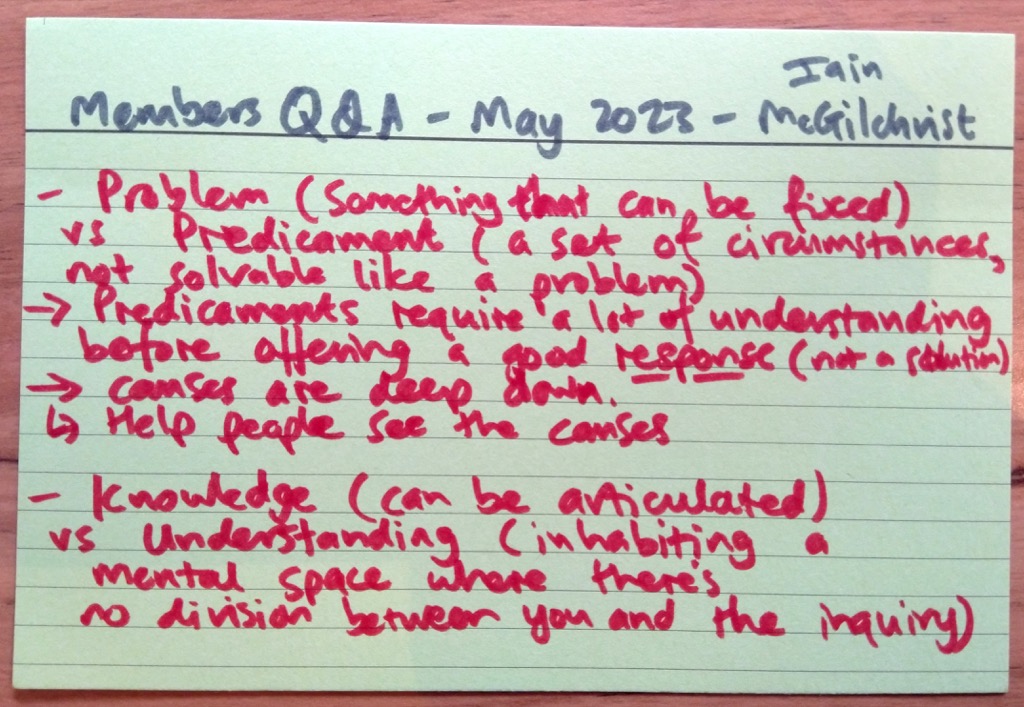 Iain
Members Q&A - May 2023 - McGilchrist
- Problem (something that can be fixed)
vs Predicament (a set of circumstances,
not solvable like a problem)
→ Predicaments require a lot of understanding
before offering a good response (not a solution)
→ causes are deep down.
↳ Help people see the causes
- Knowledge (can be articulated)
vs Understanding (inhabiting a
mental space where there's
no division between you and the inquiry)